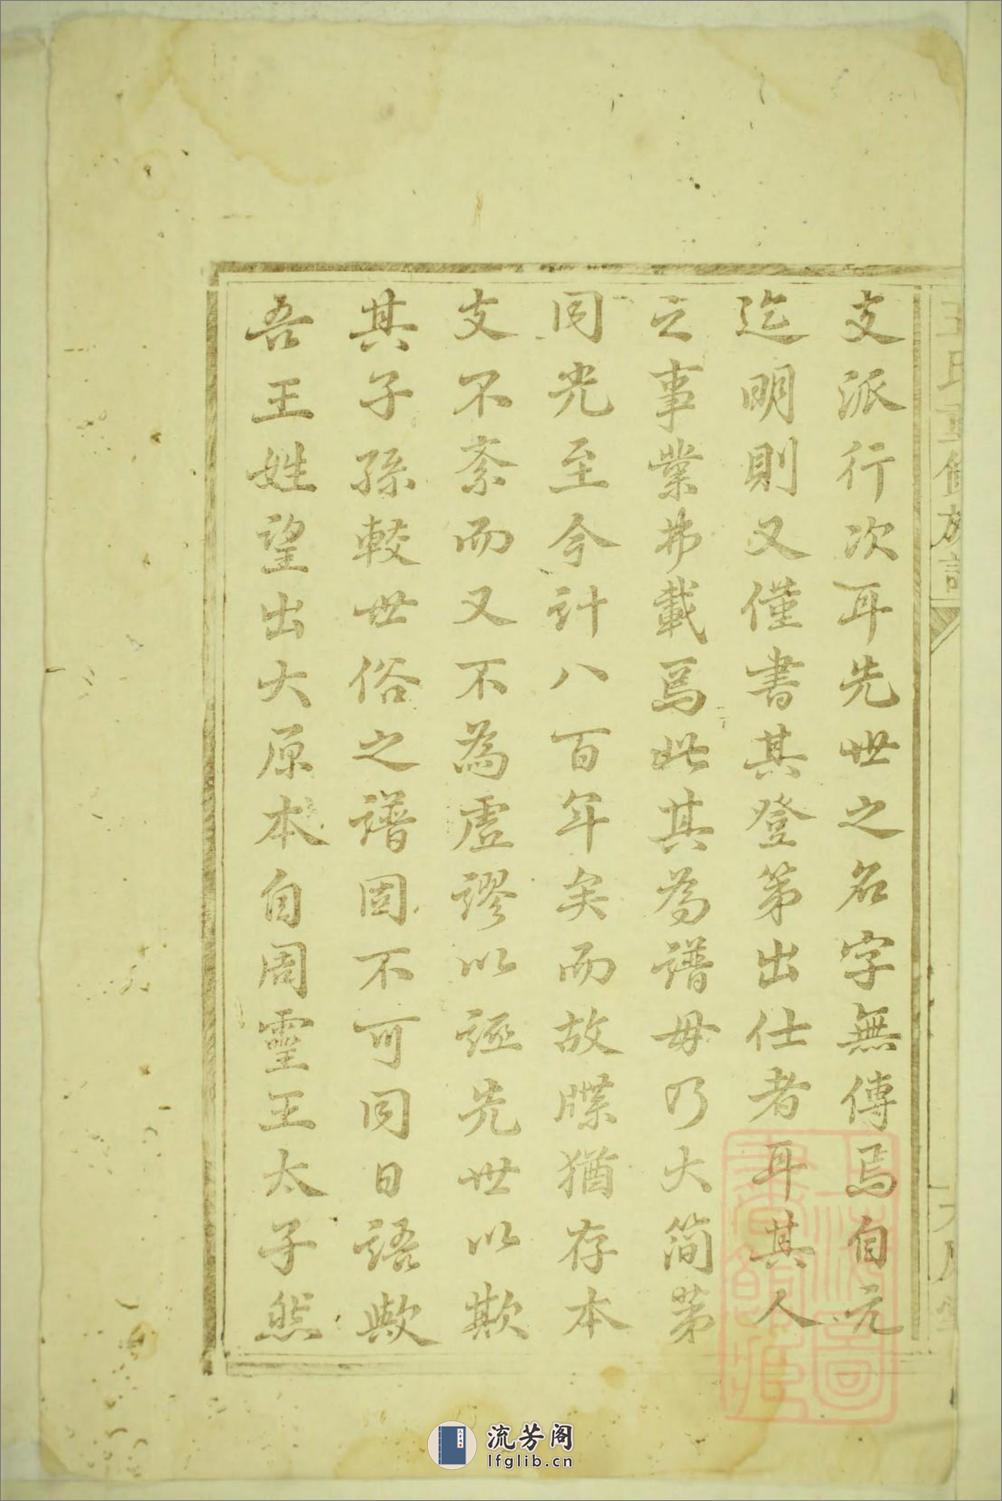 支派行次耳先世之名字無傳焉自元
迄明則又僅書其登第出仕者耳其人
之事業弗載焉此其為譜毋乃大简第
同光至今計八百年矣而故牒猶存本
支不紊而又不為虛謬以誣先世以欺
其子孫較世俗之譜固不可同日語歟
吾王姓望出大原本自周靈王太子然
王氏重修族譜
流芳阁
lfglib.cn